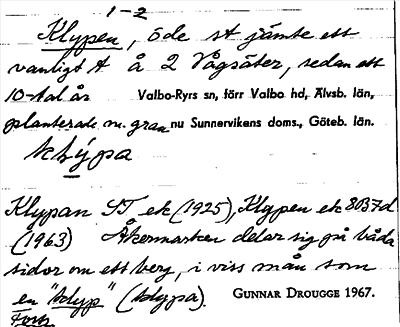 1-2
Klypen, öde st jämte ett
vanligt t å 2 Vågsäter, sedan ett
10-tal år Valbo-Ryrs sn, förr Valbo hd, Älvsb. län,
planterade m. gran nu Sunnervikens doms., Göteb. län.
klýpa
Klypan ST ek (1925), Klypen ek 8B7d
(1963) Åkermarken delar sig på båda
sidor om ett berg, i viss mån som
en "klyp" (klypa). GUNNAR DROUGGE 1967.
Forts